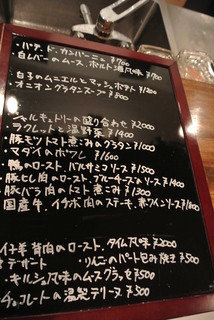 ・パテ・ド・カンパーニュ ¥700
・白レバーのムース、ポルト酒風味 ¥700
・白子のムニエルとマッシュポテト ¥1200
・オニオングラタンスープ ¥800
・シャルキュトリーの盛り合わせ ¥2000
・ラクレットと温野菜 ¥1400
・豚モツトマト煮込みのグラタン ¥1100
・マダイのポワレ ¥1600
・鴨のロースト、バルサミコソース ¥1500
・豚ヒレ肉のロースト、ブルーチーズソース
・豚バラ肉のトマト煮込み ¥1300
国産牛、イチボ肉のステーキ、赤ワインソース ¥1600
仔羊背肉のロースト、タイム風味 ¥2000
デザート ・りんごのパート包み焼き ¥500
・キルシュ風味のムースグラッセ ¥500
チョコレートの温製テリーヌ ¥500